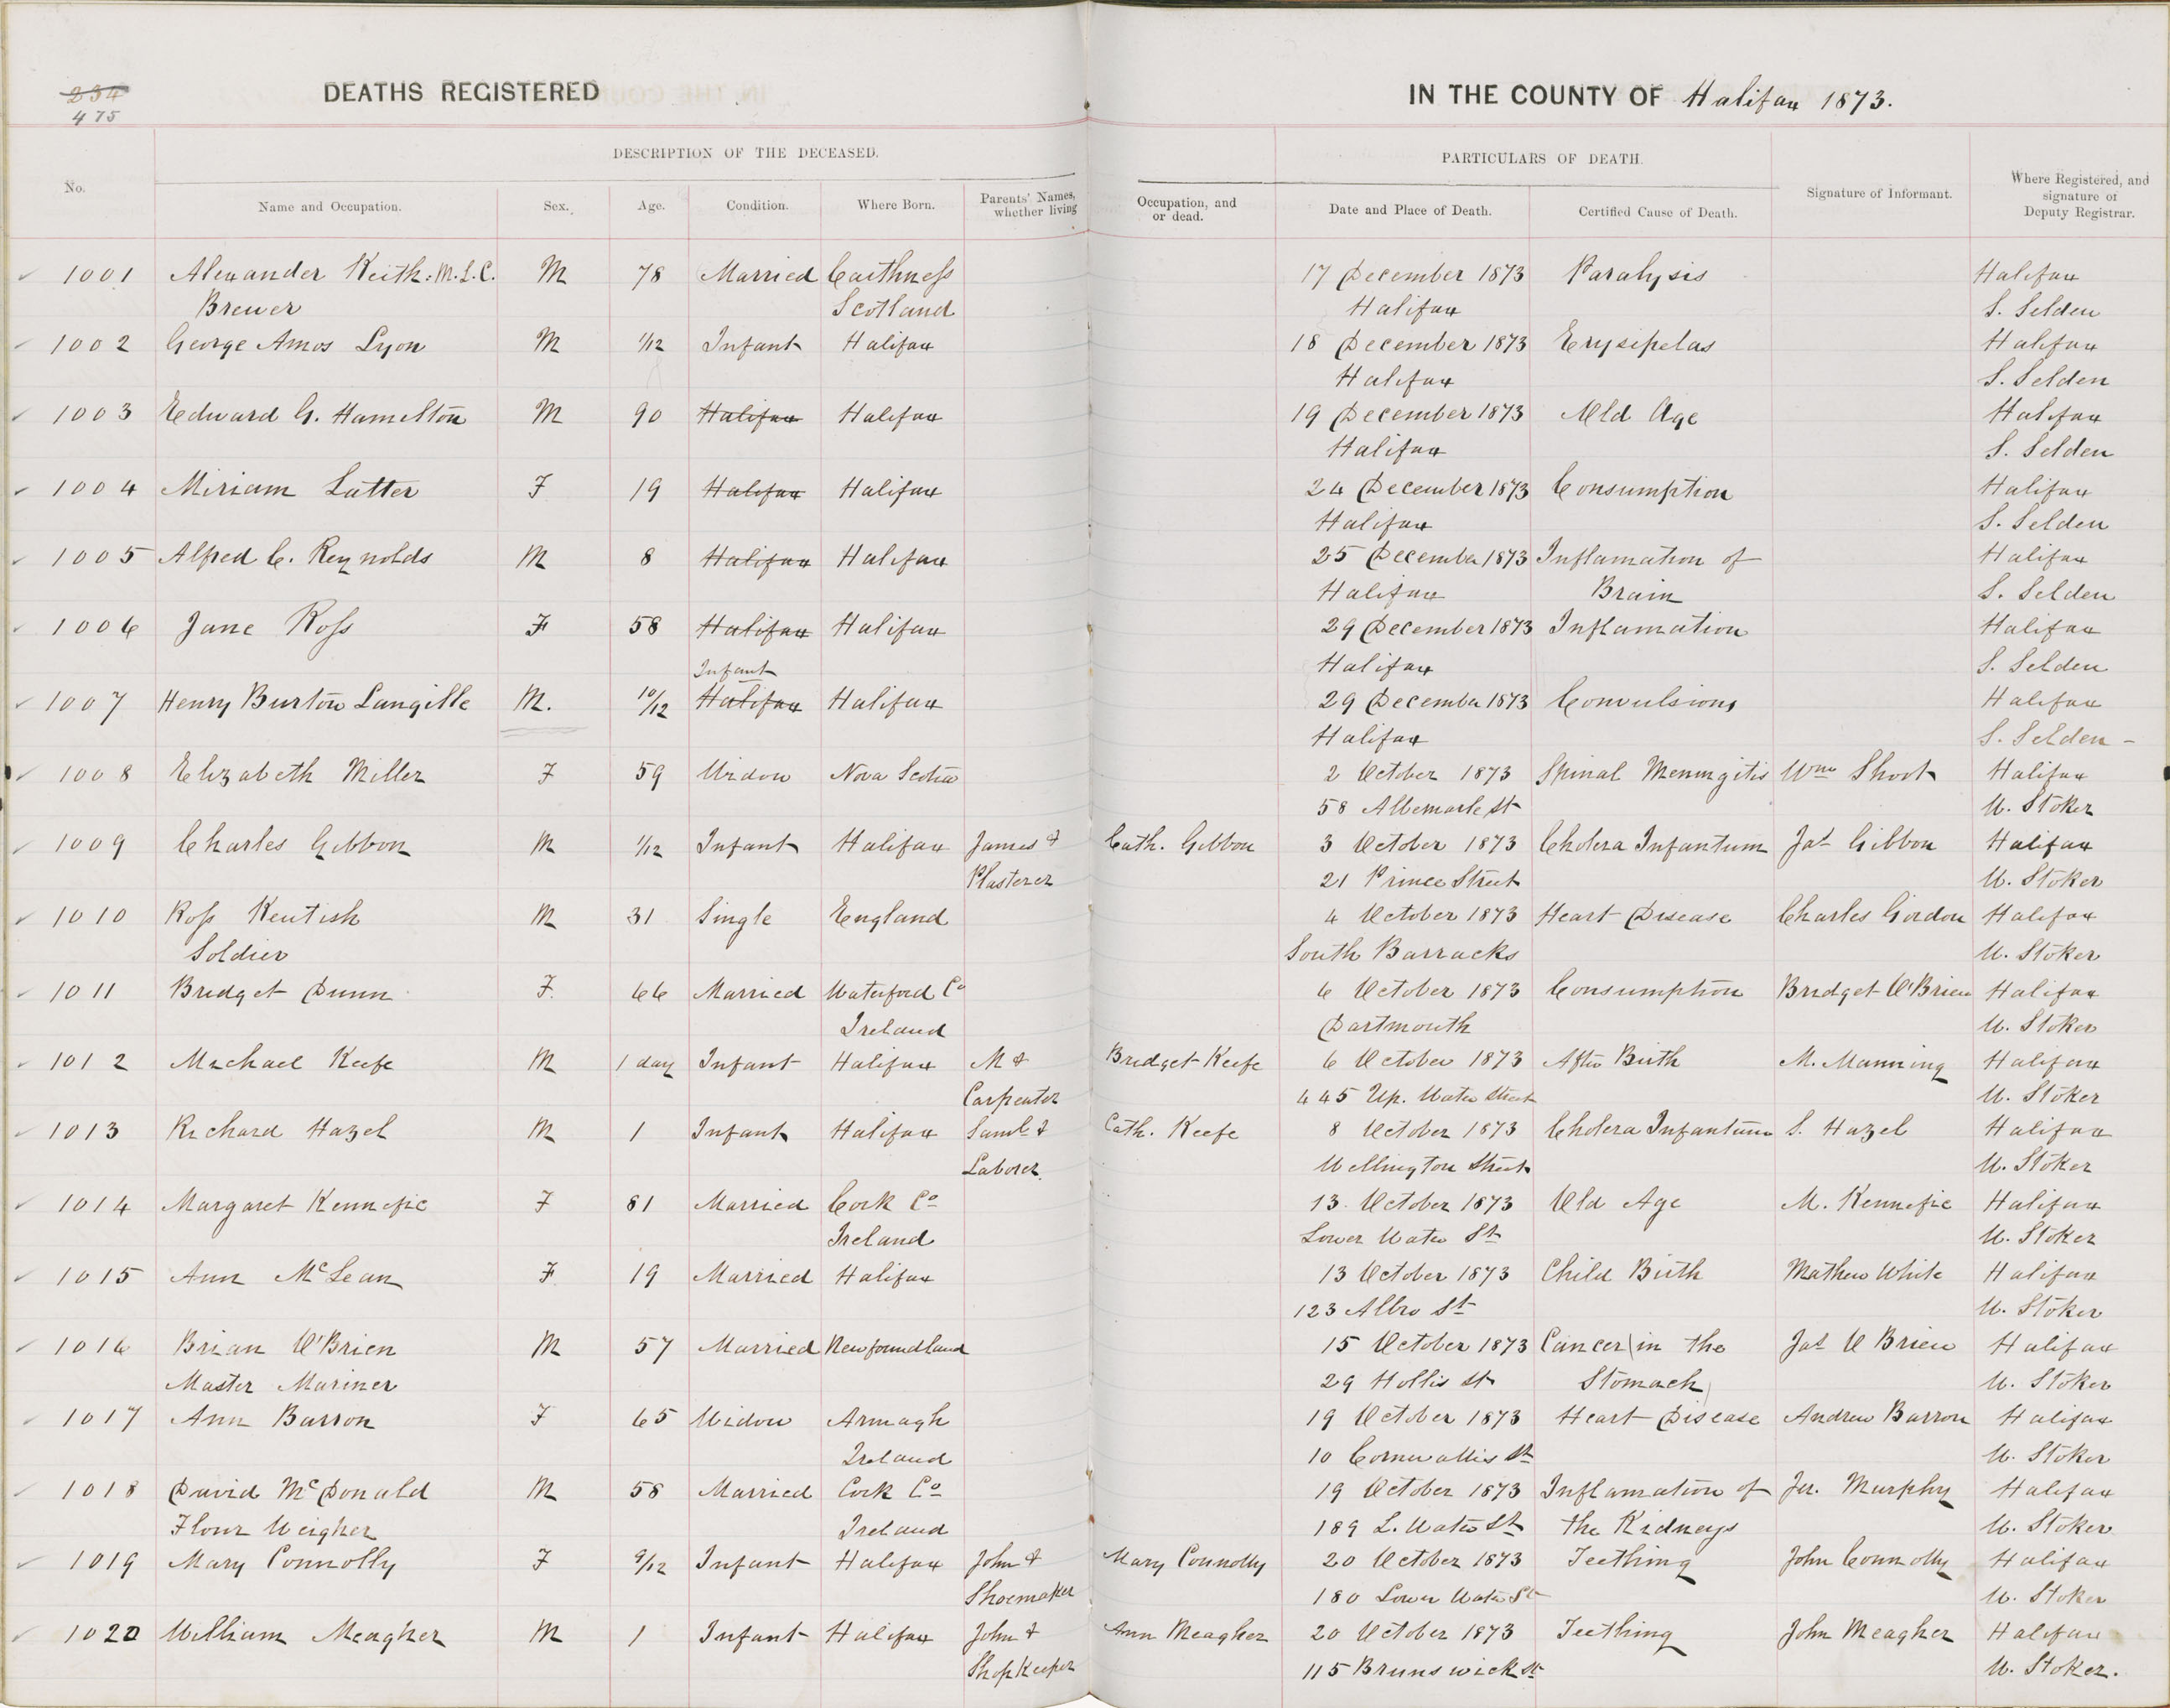 234
475
DEATHS REGISTERED
IN THE COUNTY OF Halifax 1873.
DESCRIPTION OF THE DECEASED.
PARTICULARS OF DEATH.
No.
Name and Occupation.
Sex.
Age.
Condition.
Where Born.
Parents' Names, whether living
Occupation, and or dead.
Date and Place of Death.
Certified Cause of Death.
Signature of Informant.
Where Registered, and signature of Deputy Registrar.
1001 Alexander Keith: M.L.C. M 78 Married Caithness 17 December 1873 Paralysis Halifax
Brewer Scotland Halifax S. Selden
1002 George Amos Lyon M 1/12 Infant Halifax 18 December 1873 Erysipelas Halifax
Halifax S. Selden
1003 Edward G. Hamelton M 90 Halifax Halifax 19 December 1873 Old Age Halifax
Halifax S. Selden
1004 Miriam Latter F 19 Halifax Halifax 24 December 1873 Consumption Halifax
Halifax S. Selden
1005 Alfred C. Reynolds M 8 Halifax Halifax 25 December 1873 Inflamation of Halifax
Halifax Brain S. Selden
1006 Jane Ross F 58 Halifax Halifax 29 December 1873 Inflamation Halifax
Infant Halifax S. Selden
1007 Henry Burton Langille M. 10/12 Halifax Halifax 29 December 1873 Convulsions Halifax
Halifax S. Selden -
1008 Elizabeth Miller F 59 Widow Nova Scotia 2 October 1873 Spinal Meningitis Wm Shoot Halifax
58 Albemarle St W. Stoker
1009 Charles Gibbon M 1/12 Infant Halifax James & Cath. Gibbon 3 October 1873 Cholera Infantum Jas Gibbon Halifax
Plasterer 21 Prince Street W. Stoker
1010 Ross Kentish M 31 Single England 4 October 1873 Heart Disease Charles Gordon Halifax
Soldier South Barracks W. Stoker
1011 Bridget Dunn F. 66 Married Waterford Co 6 October 1873 Consumption Bridget O'Brien Halifax
Ireland Dartmouth W. Stoker
1012 Michael Keefe M 1 day Infant Halifax M & Bridget Keefe 6 October 1873 After Birth M. Manning Halifax
Carpenter 445 Up. Water Street W. Stoker
1013 Richard Hazel M 1 Infant Halifax Saml & Cath. Keefe 8 October 1873 Cholera Infantum S. Hazel Halifax
Laborer Wellington Street W. Stoker
1014 Margaret Kennefic F 81 Married Cork Co 13. October 1873 Old Age M. Kennefic Halifax
Ireland Lower Water St W. Stoker
1015 Ann McLean F 19 Married Halifax 13 October 1873 Child Birth Mathew White Halifax
123 Albro St W. Stoker
1016 Brian O'Brien M 57 Married Newfoundland 15 October 1873 Cancer in the Jas O Brien Halifax
Master Mariner 29 Hollis St Stomach W. Stoker
1017 Ann Barron F 65 Widow Armagh 19 October 1873 Heart Disease Andrew Barron Halifax
Ireland 10 Cornwallis St W. Stoker
1018 David McDonald M 58 Married Cork Co 19 October 1873 Inflamation of Murphy Halifax
Flour Weigher Ireland 189 L. Water St the Kidneys W. Stoker
1019 Mary Connolly F 9/12 Infant Halifax John & Mary Connolly 20 October 1873 Teething John Connolly Halifax
Shoemaker 180 Lower Water St W. Stoker
1020 William Meagher M 1 Infant Halifax John & Ann Meagher 20 October 1873 Teething John Meagher Halifax
ShopKeeper 115 Brunswick St W. Stoker.